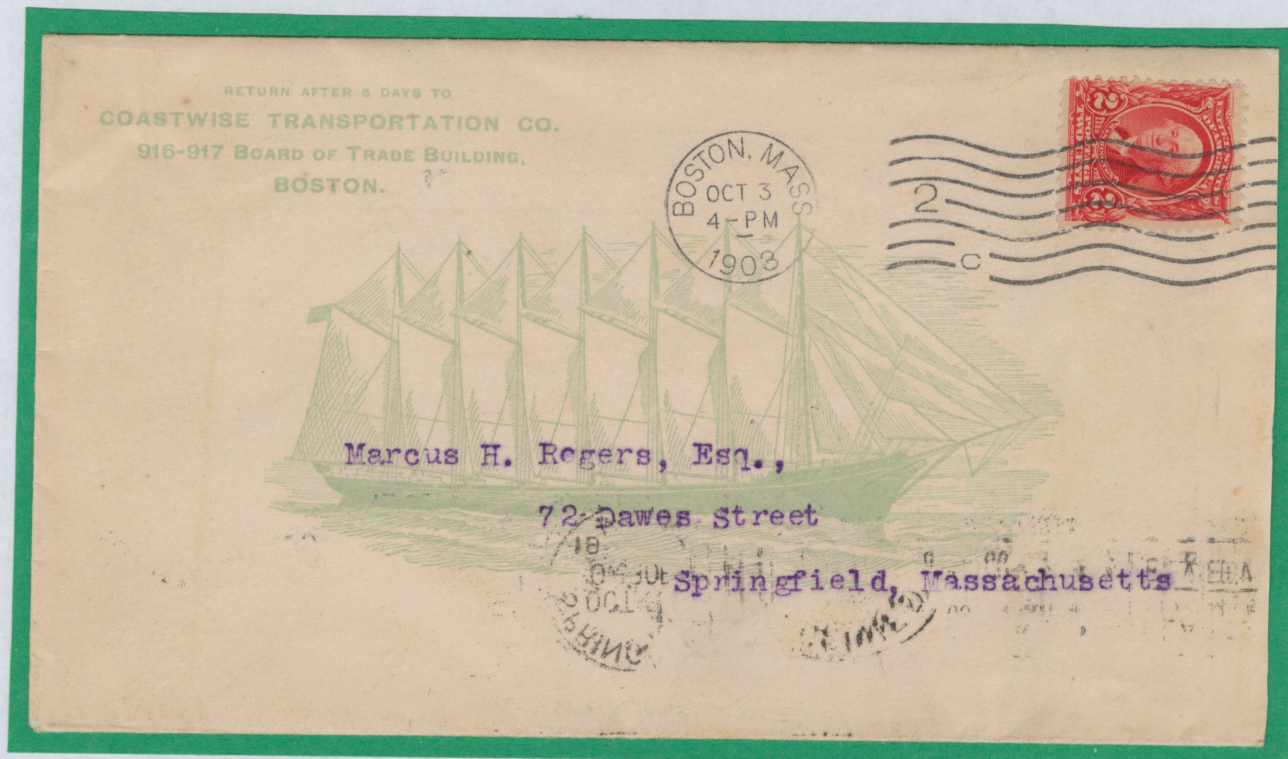 RETURN AFTER 5 DAYS TO
COASTWISE TRANSPORTATION CO.
916-917 BOARD OF TRADE BUILDING,
BOSTON.
BOSTON, MASS
OCT 3
4-PM
1903
2
C
2
2
Marcus H. Rogers, Esq.,
72 Dawes Street
Springfield, Massachusetts
SPRING
OCT